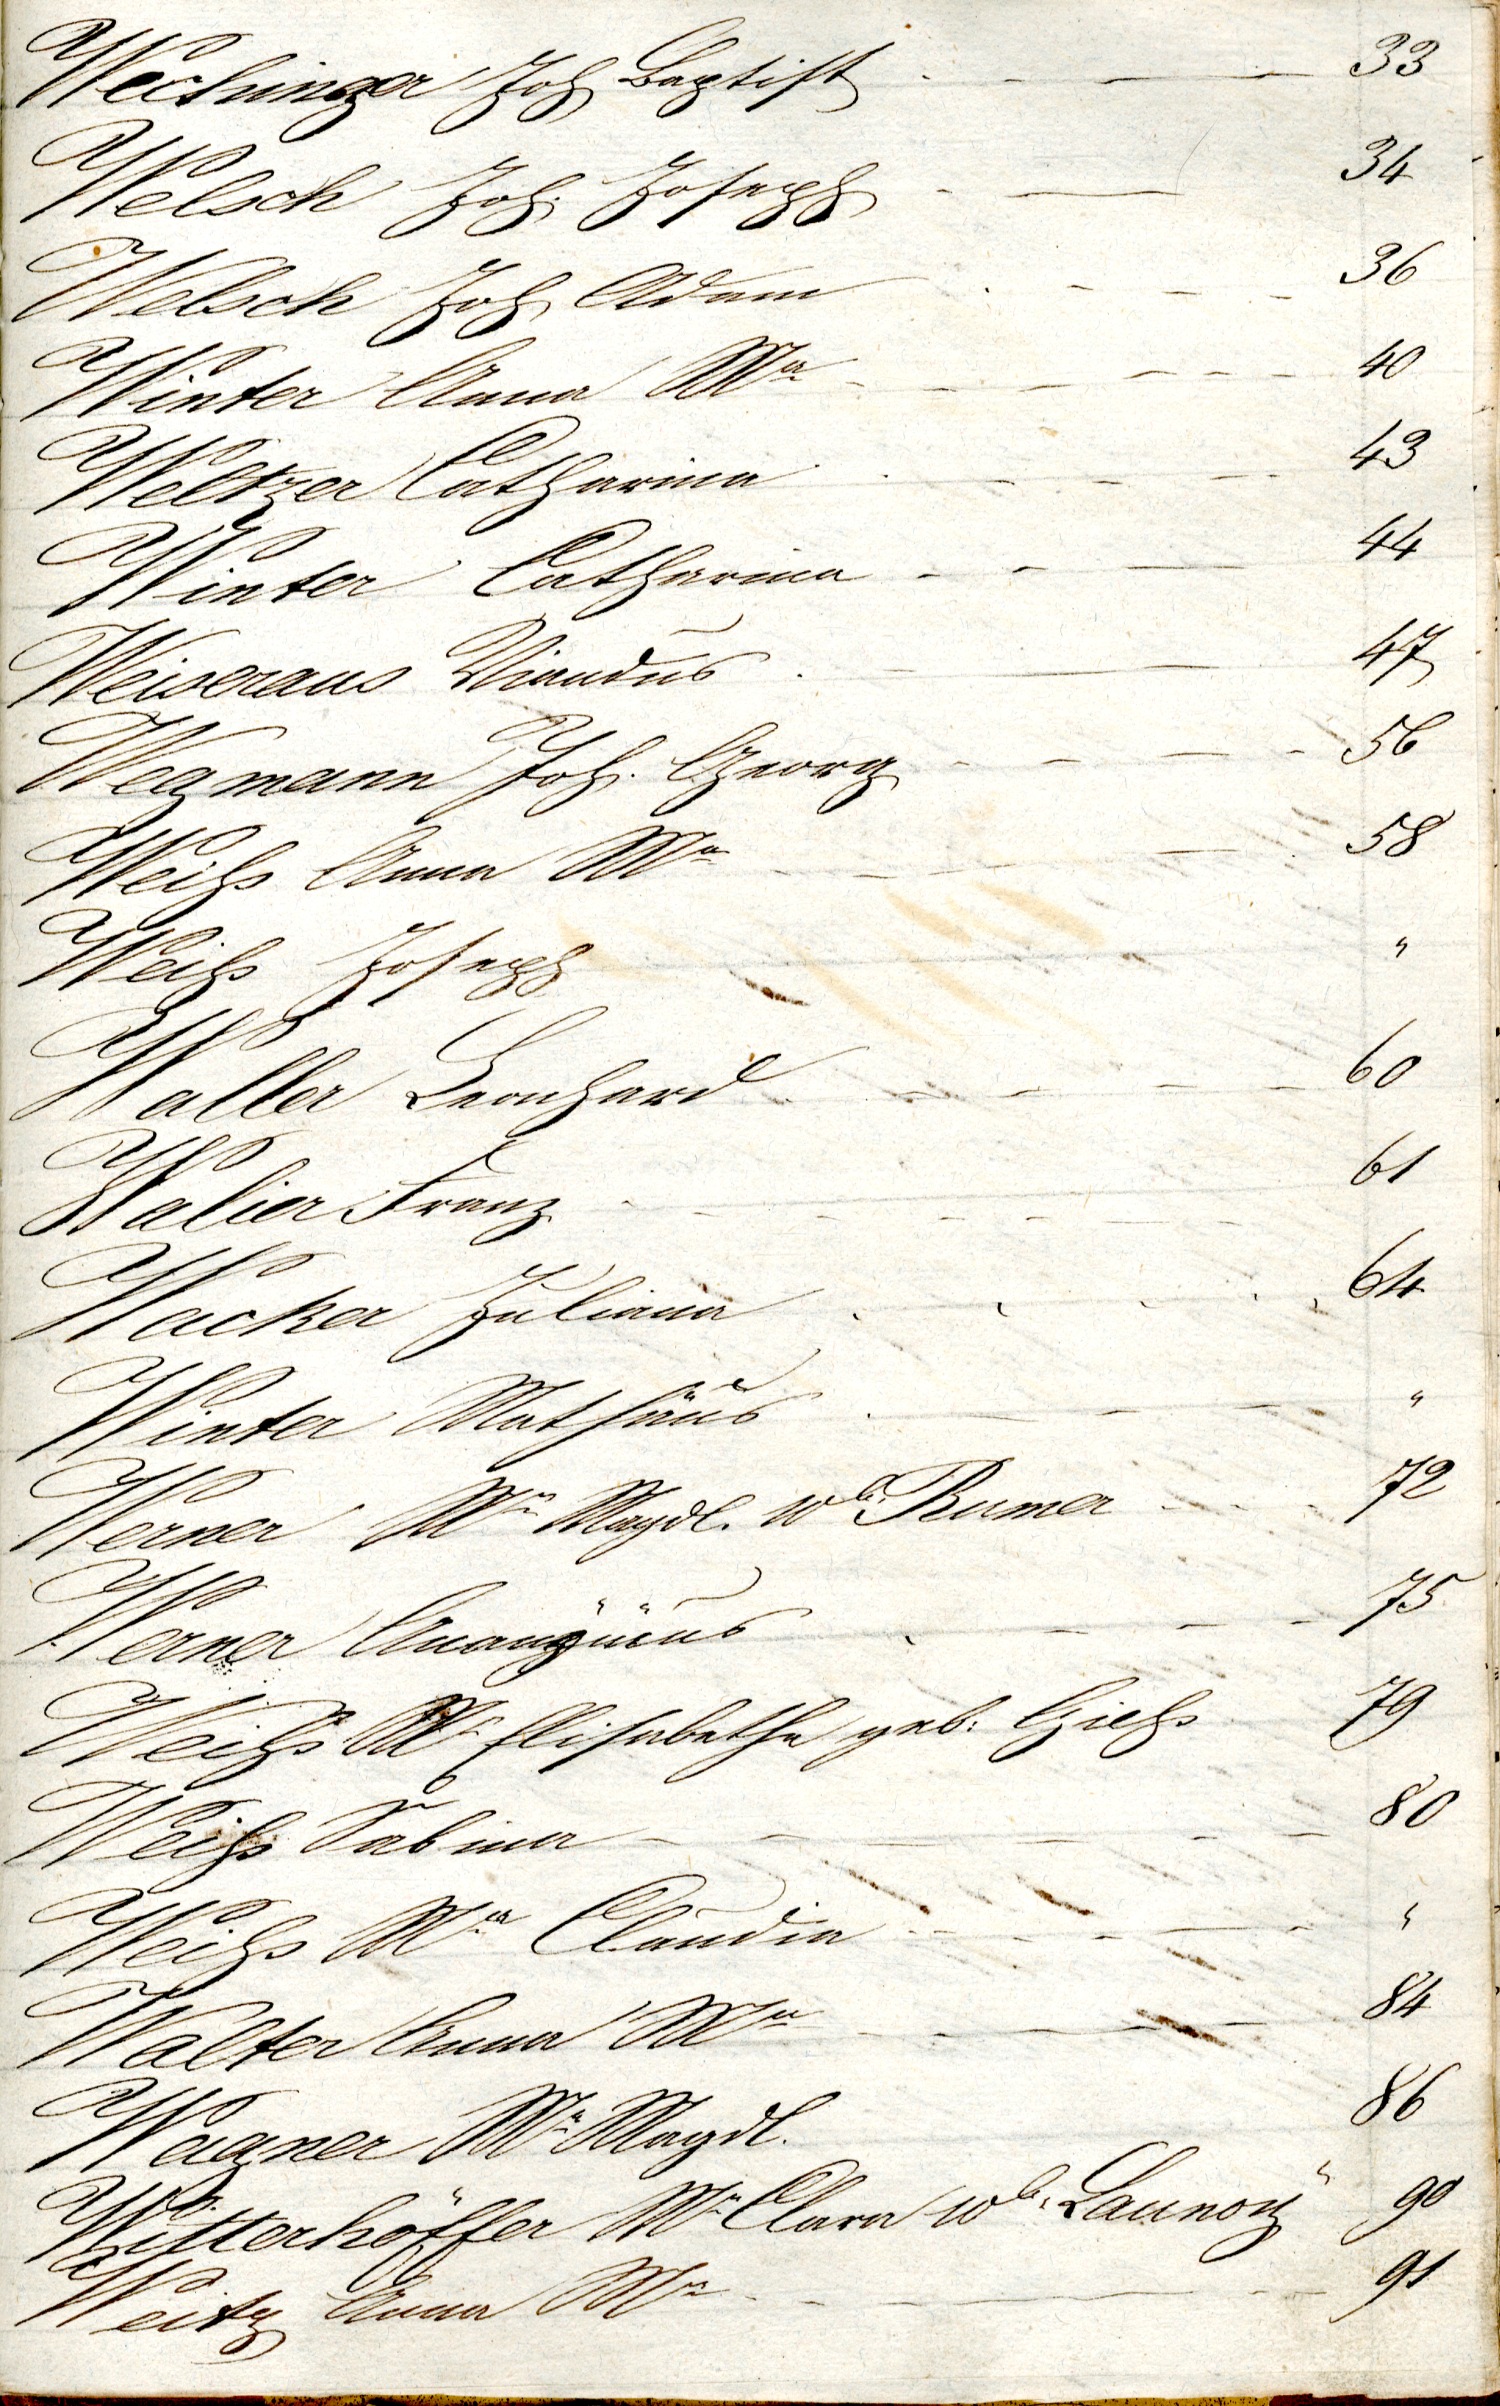 Wechinger Joh Baptist 33
Welsch Joh. Joseph 34
Welsch Joh Adam 36
Winter Anna Mª 40
Weltzer Catharina 43
Winter Catharina 44
Weiseraus 47
Wegmann Joh. Georg 56
Weihs Anna Mª 58
Weihs Joseph "
Waller Leonhard 60
Walier Franz 61
Wacker Juliana 64
Winter Mathäus "
Werner Mª Magdl. Rumer 72
Werner 75
Weihs Mª Elisabetha geb: Giehs 79
Weihs Sabina 80
Weihs Mª Claudia "
Walter Anna Mª 84
Wagner Mª Magdl. 86
Witterhöffer Mª Clara Launoÿ 90
Weitz Anna Mª 91